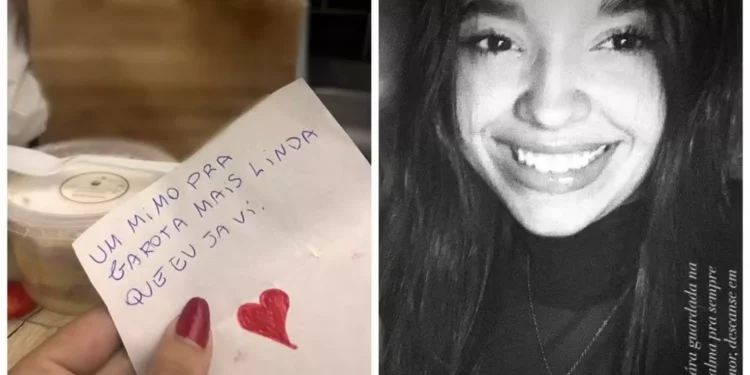 UM MIMO PRA
GAROTA MAIS LINDA
QUE EU JA VI.
ára guardada na
alma pra sempre
mor, descanse em